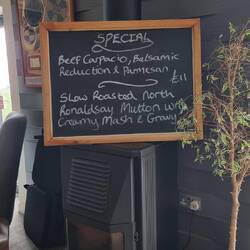 SPECIAL
Beef Carpacio, Balsamic
Reduction & Parmesan
£11
Slow Roasted North
Ronaldsay Mutton with
Creamy Mash & Gravy